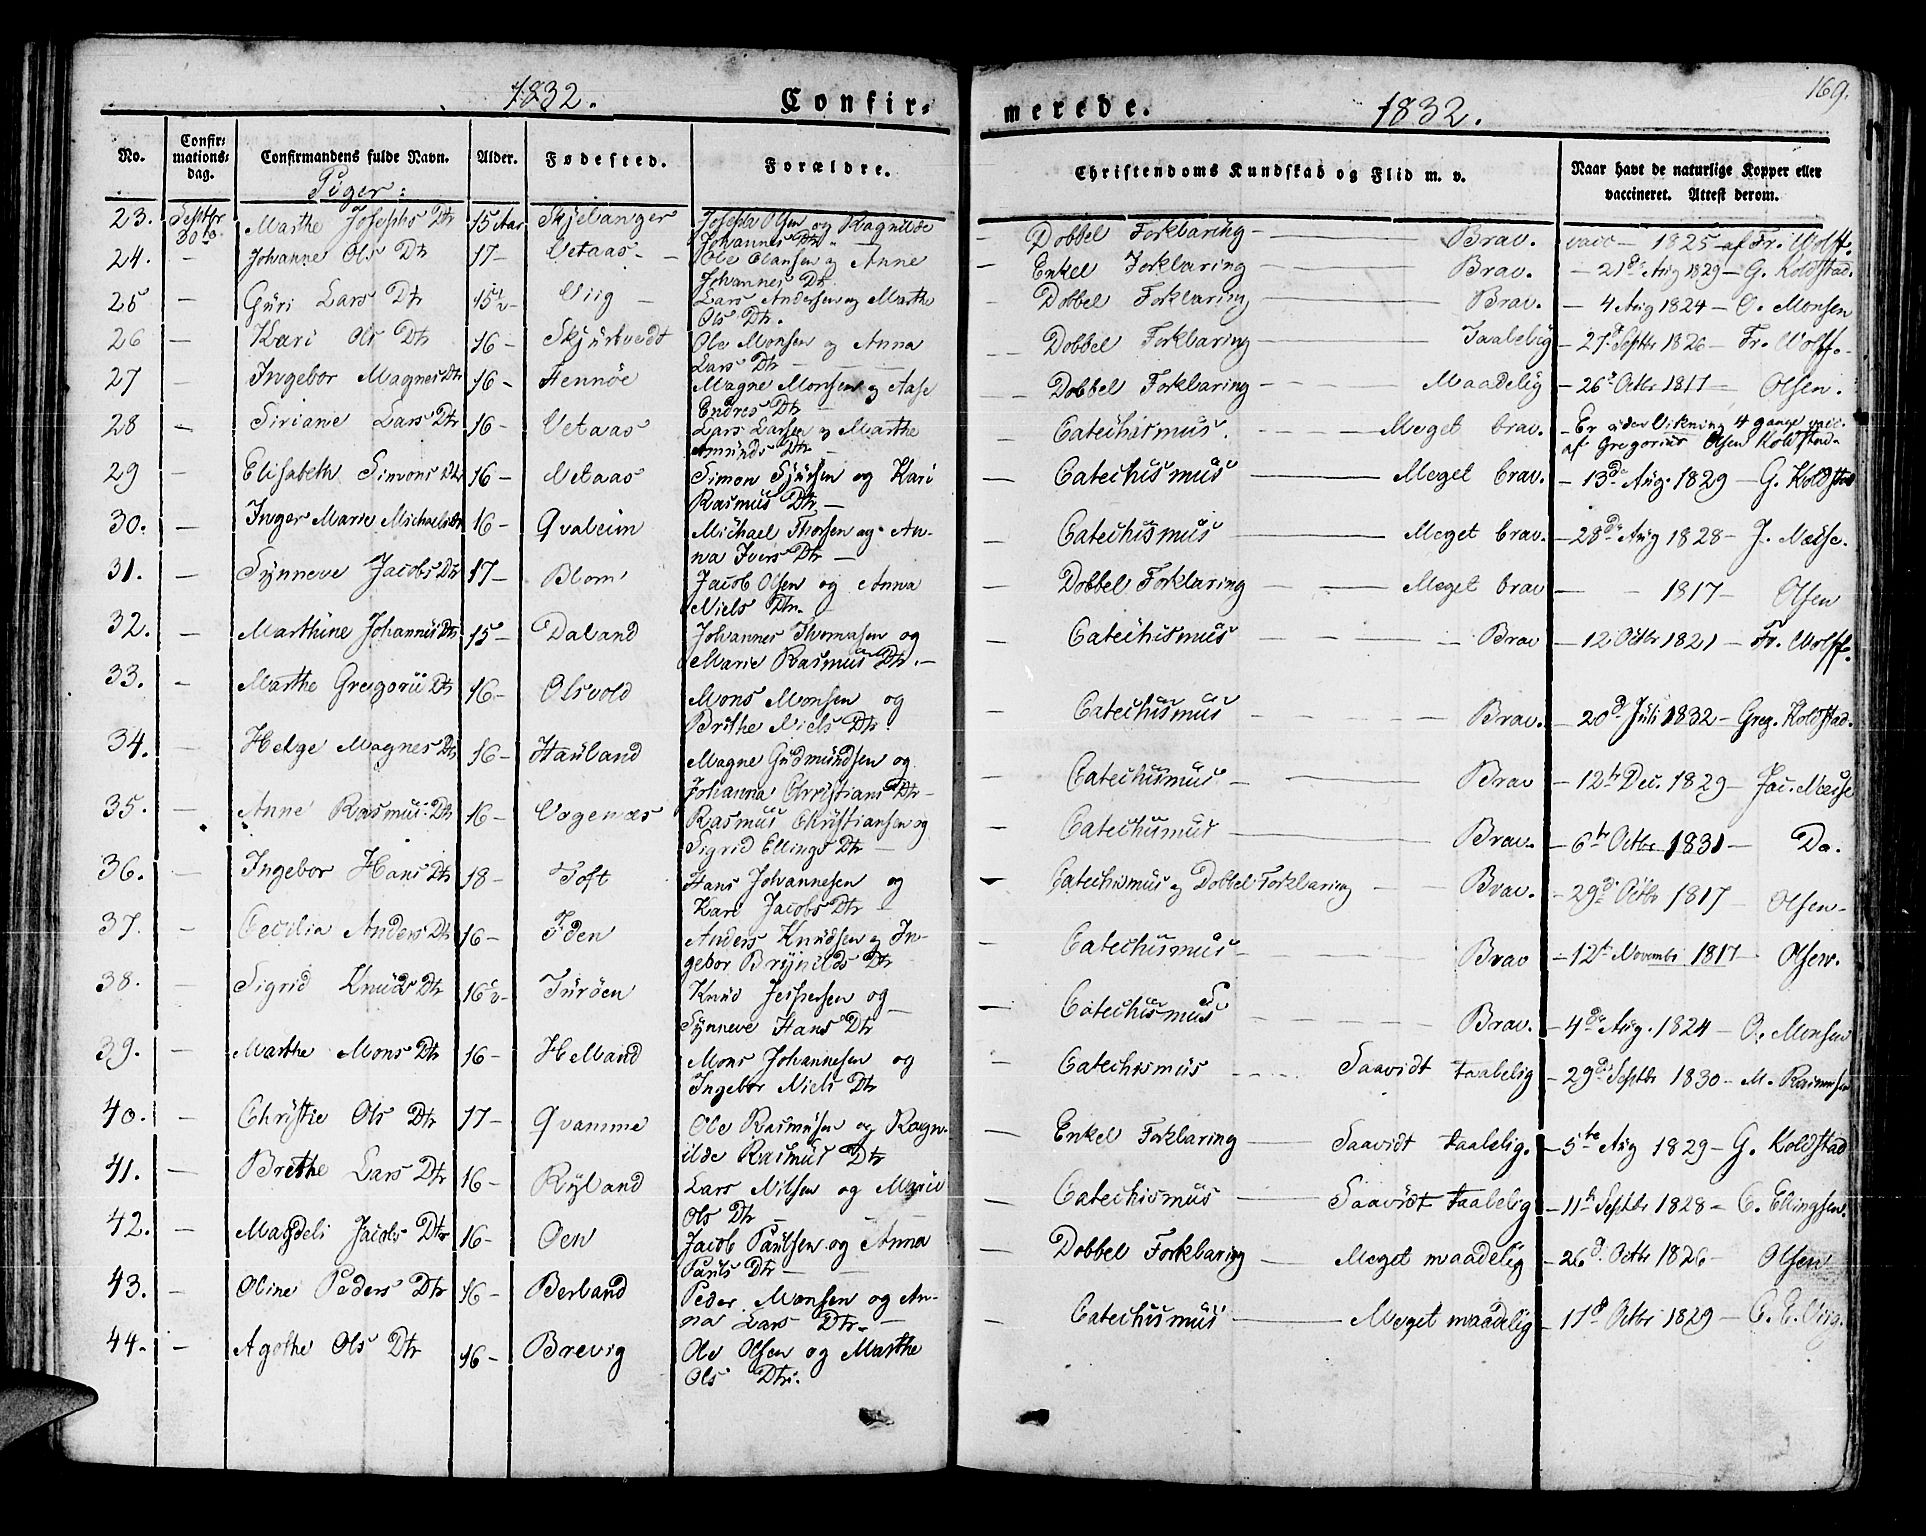 1832. Confir= merede. 1832. 169.
No. Confir- mations- dag. Confirmandens fulde Navn. Alder. Fødested. Forældre. Christendoms Kundskab og Flid m. v. Naar havt de naturlige Kopper eller vaccineret. Attest derom.
Piger:
23. Septbr 30te Marthe Josephs Dtr 15 Aar Skjelanger Joseph Olsen og Ragnilde Johannes Dtr - Dobbel Forklaring - Brav. vacc - 1825 - af Fr. Wolff.
24. - Johanne Ols Dtr 17 - Vetaas - Ole Olansen og Anne Johannes Dtr. - Enkel Forklaring - Brav. - 21de Aug 1829 - G. Koldstad.
25 - Guri Lars Dtr 15½ - Viig - Lars Andersen og Marthe Ols Dtr. - Dobbel Forklaring - Brav. - 4 Aug 1824 - O. Monsen
26 - Kari Ols Dtr 16 - Skjurtvedt Ole Monsen og Anna Lars Dtr - Dobbel Forklaring - Taalelig - 27d Septbr 1826 - Fr. Wolff.
27 - Ingebor Magnes Dtr 16 - Fennöe Magne Monsen og Aase Endres Dtr - Dobbel Forklaring - Maadelig - 26d Octbr 1817 - Olsen.
28 - Siriane Lars Dtr 16 - Vetaas Lars Larsen og Marthe Amunds Dtr - Catechismus. - Meget brav. - Er uden Virkning 4 gange vacc. af Gregorius Olsen Koldstad
29 - Elisabeth Simons Dtr 16 - Vetaas Simon Sjursen og Kari Rasmus Dtr - Catechismus - Meget brav. - 13de Aug. 1829 - G. Koldstad
30. - Inger Marie Michaels Dtr 16 - Qvaleim Michael Thorsen og Anna Ivers Dtr - Catechismus - Meget brav. - 28de Aug 1828 - J. Næse.
31. - Synneve Jacobs Dtr 17 - Blom Jacob Olsen og Anna Niels Dtr - Dobbel Forklaring - Meget brav - 1817 - Olsen
32. - Marthine Johannis Dtr 15 - Daland Johannes Thomasen og Marie Rasmus Dtr. - Catechismus - Brav - 12 Octbr 1821 - Fr. Wolff.
33. - Marthe Gregorii Dtr 16 - Olsvold Mons Monsen og Brithe Niels Dtr. - Catechismus - Brav. - 20d Juli 1832 - Greg. Koldstad.
34. - Helge Magnes Dtr 16 - Hauland Magne Gudmundsen og Johanna Christians Dtr - Catechismus - Brav - 12te Dec. 1829 - Jac. Næse
35. - Anne Rasmus Dtr 16 - Vogenæs Rasmus Christiansen og Sigrid Ellings Dtr - Catechismus - Brav. - 6te Octbr 1831 - Do.
36. - Ingebor Hans Dtr 18 - Toft Hans Johannesen og Kari Jacobs Dtr - Catechismus og Dobbel Forklaring - Brav. - 29de Octbr 1817 - Olsen -
37. - Cecilia Anders Dtr 16 - Iden Anders Knudsen og Ingebor Brynilds Dtr - Catechismus - Brav - 12te Novembr 1817 - Olsen.
38. - Sigrid Knuds Dtr 16½ - Turöen Knud Jespersen og Synneve Hans Dtr - Catechismus - Brav. - 4de Aug. 1824 - O. Monsen
39. - Marthe Mons Dtr 16 - Helland Mons Johannesen og Ingebor Niels Dtr - Catechismus - Saavidt taalelig - 29d Septbr 1830 - M. Rasmussen
40. - Christie Ols Dtr 17 - Qvamme Ole Rasmusen og Ragnilde Rasmus Dtr - Enkel Forklaring - Saavidt taalelig. - 5te Aug 1829 - G. Koldstad
41. - Brethe Lars Dtr 16 - Ryland Lars Nilsen og Mari Ols Dtr - Catechismus - Saavidt taalelig - 11te Septbr 1828 - C. Ellingsen.
42. - Magdeli Jacobs Dtr 16 - Oen Jacob Paulsen og Anna Pauls Dtr - Dobbel Forklaring - Meget maadelig - 26d. Octbr 1826 - Olsen
43. - Oline Peders Dtr 16 - Berland Peder Monsen og Anna Lars Dtr. - Catechismus - Meget maadelig - 17d Octbr 1829 - C. E. Viig.
44. - Agathe Ols Dtr 16 - Brevig Ole Olsen og Marthe Ols Dtr.